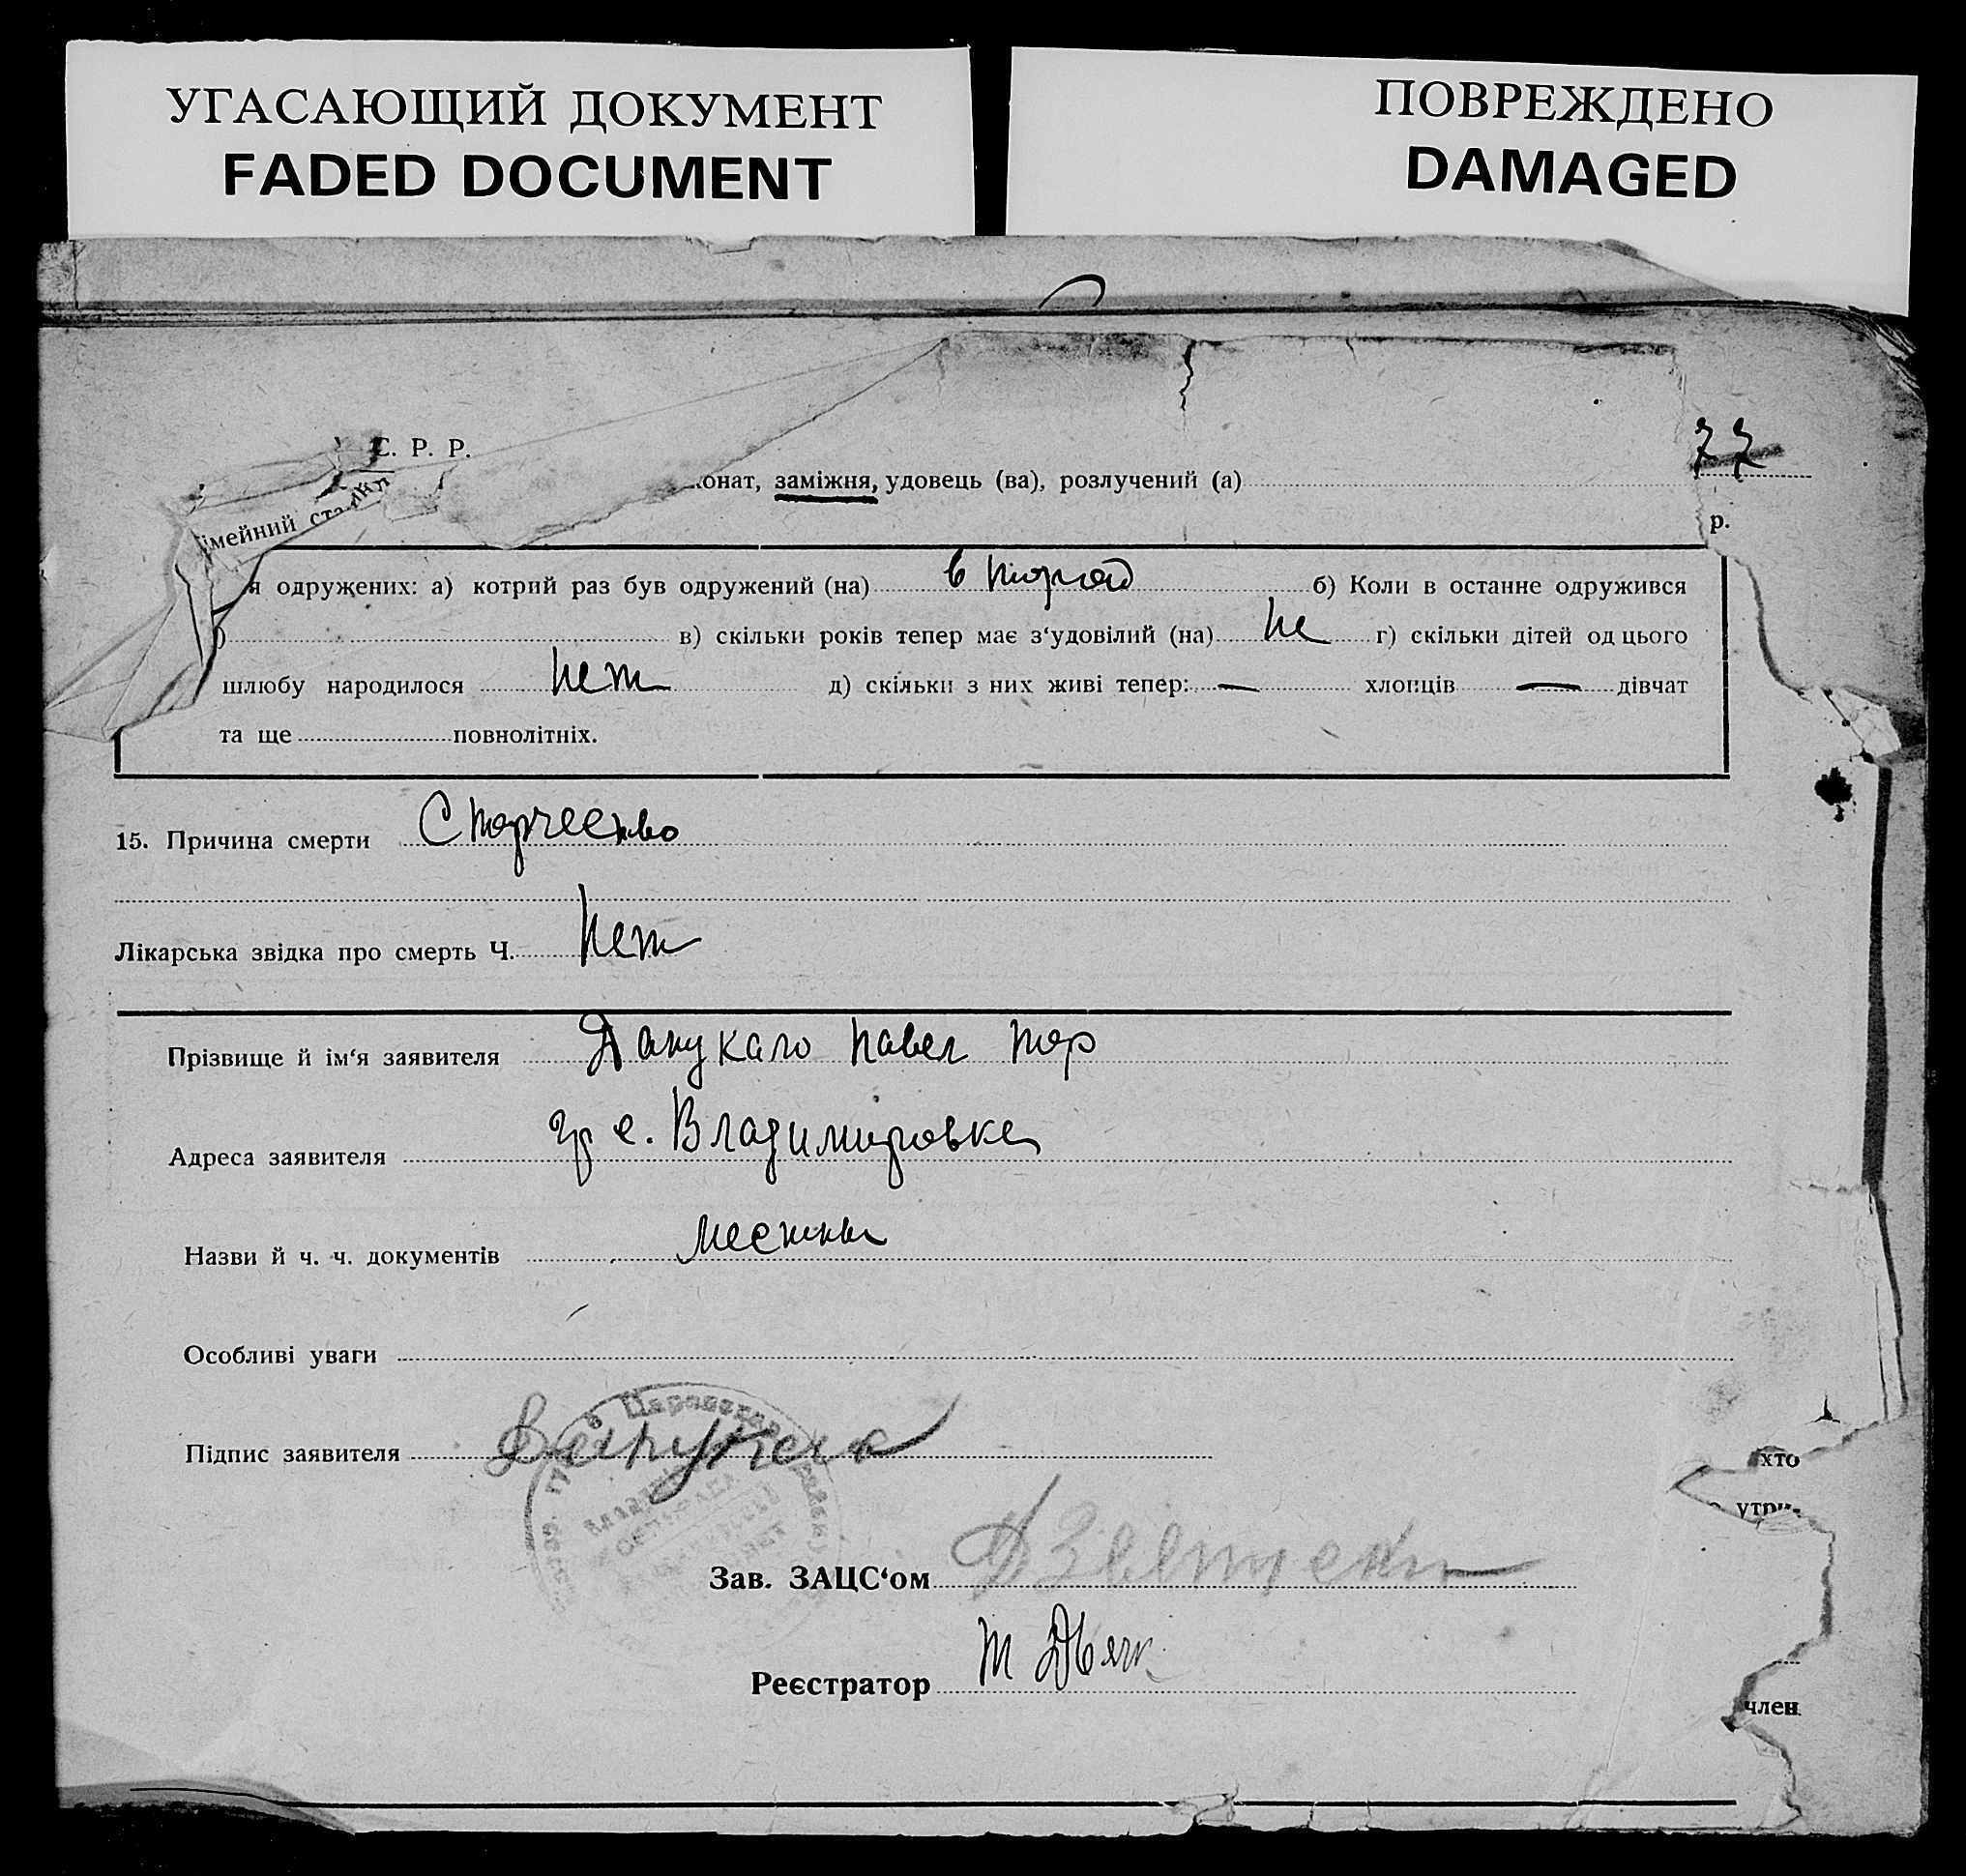 УГАСАЮЩИЙ ДОКУМЕНТ
FADED DOCUMENT
ПОВРЕЖДЕНО
DAMAGED
С. Р. Р.
77
імейний ста
онат, заміжня, удовець (ва), розлучений (а)
р.
я одружених: а) котрий раз був одружений (на) второй б) Коли в останне одружився
) в) скільки років тепер має з‘удовілий (на) не г) скільки дітей од цього
шлюбу народилося нет д) скільки з них живі тепер: — хлопців — дівчат
та ще повнолітніх.
15. Причина смерти Старчество
Лікарська звідка про смерть Ч. Нет
Прізвище й ім‘я заявителя Павел
Адреса заявителя гр с. Владимировке
Назви й ч. ч. документів местны
Особливі уваги
Підпис заявителя
хто
утри-
Зав. ЗАЦС‘ом
Реєстратор
член.